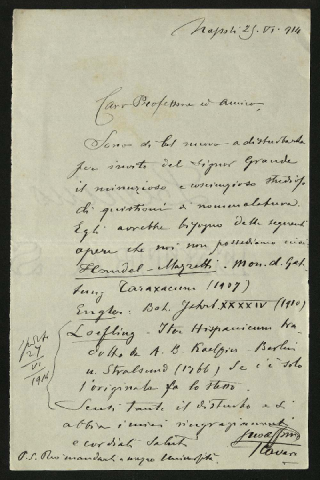 Napoli 25. VI. 914
Caro Professore ed Amico,
Sono di bel nuovo a disturbarla
per invito del Signor Grande
il minuzioso e coscienzioso studioso
di quistioni di nomenclatura.
Egli avrebbe bisogno delle seguenti
opere che noi non possediamo cioè
Handel-Mazzetti. Mon. d. Gat
tung Taraxacum (1907)
Engler. Bot. Jahrb. XXXXIV (1910)
Loefling. Iter Hispanicum tra
dotto da A. B. Koelpin Berlin
u. Stralsund (1766), Se c'è solo
l'originale fa lo stesso.
Scusi tanto il disturbo e si
abbia i miei ringraziamenti
e cordiali saluti
Cavara
P.S. Rimandare a mezzo Università
27
VI
1914